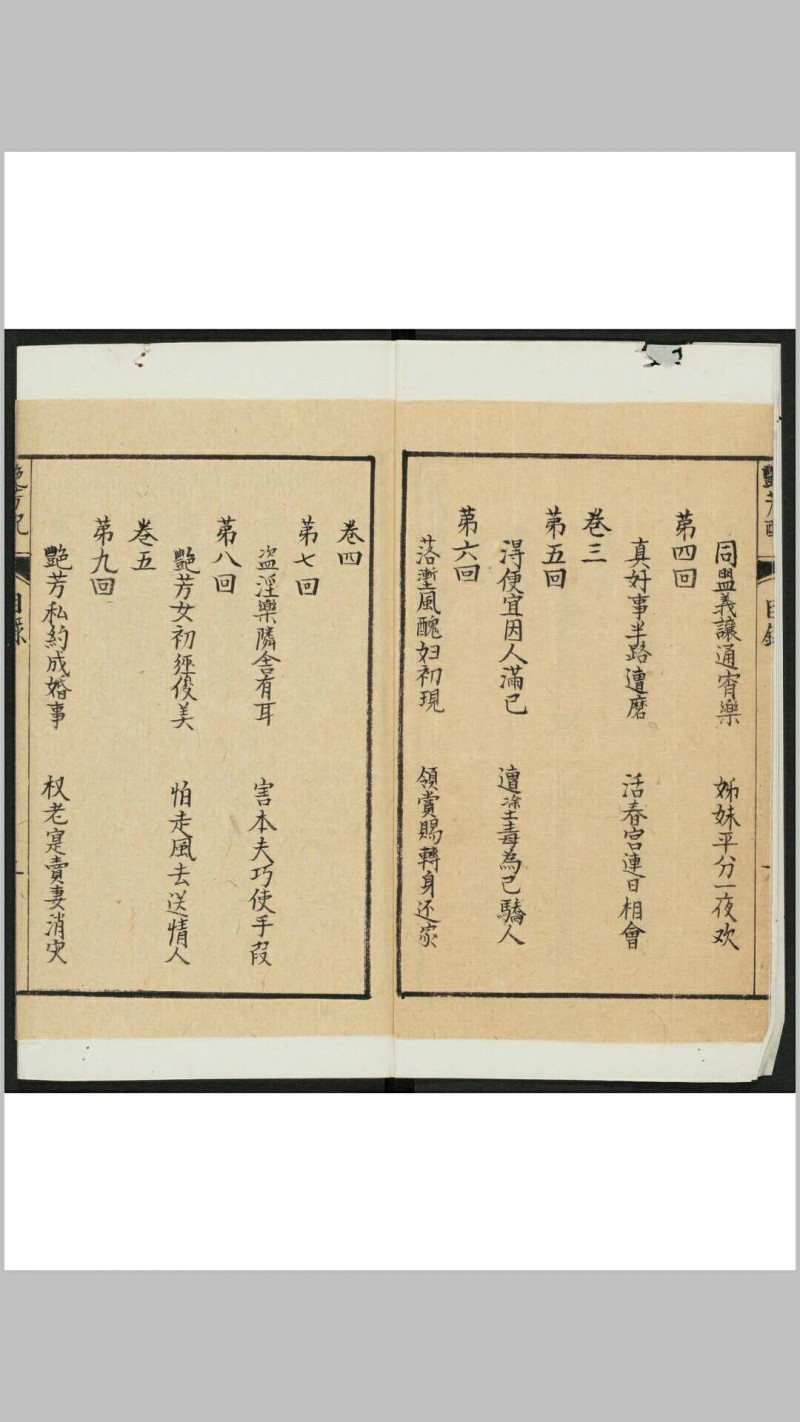 同盟義讓通宵樂　姊妹平分一夜欢
第四回
真好事半路遭磨　活春宮連日相會
卷三
第五回
淂便宜因人滿己　遭塗毒為己驕人
第六回
落塹風醜妇初現　領賞賜轉身还家
卷四
第七回
盗淫樂隣舍有耳　害本夫巧使手段
第八回
艷芳女初經俊美　怕走風去送情人
卷五
第九回
艷芳私約成婚事　权老寔賣妻消灾
目錄